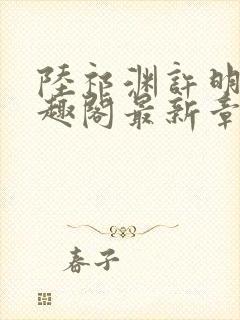 陸祁渊許明
趣閣最新章
春子